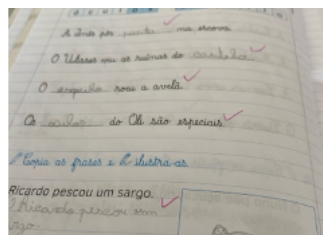 A Inês pôs pasta na escova.
O Ulisses viu as ruínas do castelo.
O esquilo roeu a avelã.
Os do Oli são especiais.
Copia as frases e ilustra-as.
Ricardo pescou um sargo.
Ricardo pescou um